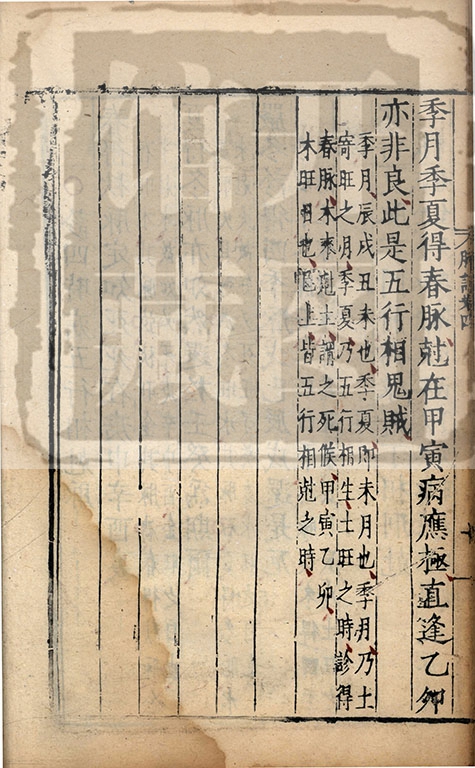 季月季夏得春脉尅在甲寅病應極直逢乙卯
亦非良此是五行相鬼賊
季月辰戌丑未也季夏即未月也季月乃土
寄旺之月季夏乃五行相生土旺之時診得
春脉木來尅土謂之死候甲寅乙卯
木旺日也已上皆五行相尅之時